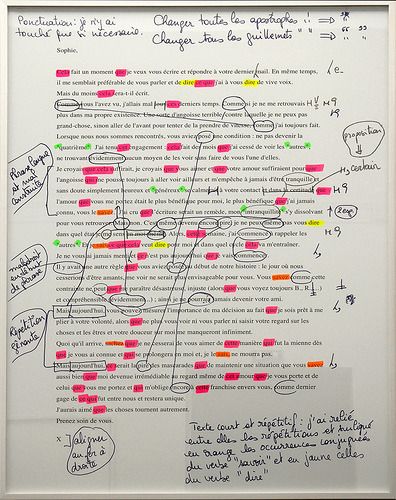 Ponctuation: je n'y ai
touché que si nécessaire.
Changer toutes les apostrophes
Changer tous les guillemets
Sophie,
Cela fait un moment que je veux vous écrire et répondre à votre dernier mail. En même temps,
il me semblait préférable de vous parler et de dire ce que j'ai à vous dire de vive voix.
Mais du moins cela sera-t-il écrit.
Comme vous l'avez vu, j'allais mal ces derniers temps. Comme si je ne me retrouvais
plus dans ma propre existence. Une sorte d'angoisse terrible, contre laquelle je ne peux pas
grand-chose, sinon aller de l'avant pour tenter de la prendre de vitesse, comme j'ai toujours fait.
Lorsque nous nous sommes rencontrés, vous aviez posé une condition : ne pas devenir la
"quatrième". J'ai tenu cet engagement : cela fait des mois que j'ai cessé de voir les "autres",
ne trouvant évidemment aucun moyen de les voir sans faire de vous l'une d'elles.
Je croyais que cela suffirait, je croyais que vous aimer et que votre amour suffiraient pour que
l'angoisse qui me pousse toujours à aller voir ailleurs et m'empêche à jamais d'être tranquille et
sans doute simplement heureux et "généreux" se calmerait à votre contact et dans la certitude que
l'amour que vous me portez était le plus bénéfique pour moi, le plus bénéfique que j'ai jamais
connu, vous le savez. J'ai cru que l'écriture serait un remède, mon s'y dissolvant
pour vous retrouver. Mais non. C'est même devenu encore pire, je ne peux même pas vous dire
dans quel état je me sens en moi-même. Alors, cette semaine, j'ai commencé à rappeler les
"autres". Et je sais ce que cela veut dire pour moi et dans quel cycle cela va m'entraîner.
Je ne vous ai jamais menti et ce n'est pas aujourd'hui que je vais commencer.
Il y avait une autre règle que vous aviez posée au début de notre histoire : le jour où nous
cesserions d'être amants, me voir ne serait plus envisageable pour vous. Vous savez comme cette
contrainte ne peut que me paraître désastreuse, injuste (alors que vous voyez toujours B., R.…)
et compréhensible (évidemment…) ; ainsi je ne pourrais jamais devenir votre ami.
Mais aujourd'hui, vous pouvez mesurer l'importance de ma décision au fait que je sois prêt à me
plier à votre volonté, alors que ne plus vous voir ni vous parler ni saisir votre regard sur les
choses et les êtres et votre douceur sur moi me manqueront infiniment.
Quoi qu'il arrive, sachez que je ne cesserai de vous aimer de cette manière que fut la mienne dès
que je vous ai connue et qui se prolongera en moi et, je le sais, ne mourra pas.
Mais aujourd'hui, ce serait la pire des mascarades que de maintenir une situation que vous savez
aussi bien que moi devenue irrémédiable au regard même de cet amour que je vous porte et de
celui que vous me portez et qui m'oblige encore à cette franchise envers vous, comme dernier
gage de ce qui fut entre nous et restera unique.
J'aurais aimé que les choses tournent autrement.
Prenez soin de vous.
X
proposition
Répétition
gênante
aligner
au fer à
droite
Texte court et répétitif : j'ai relié
entre elles les répétitions et indiqué
en orange les occurrences conjuguées
du verbe "savoir" et en jaune celles
du verbe "dire"